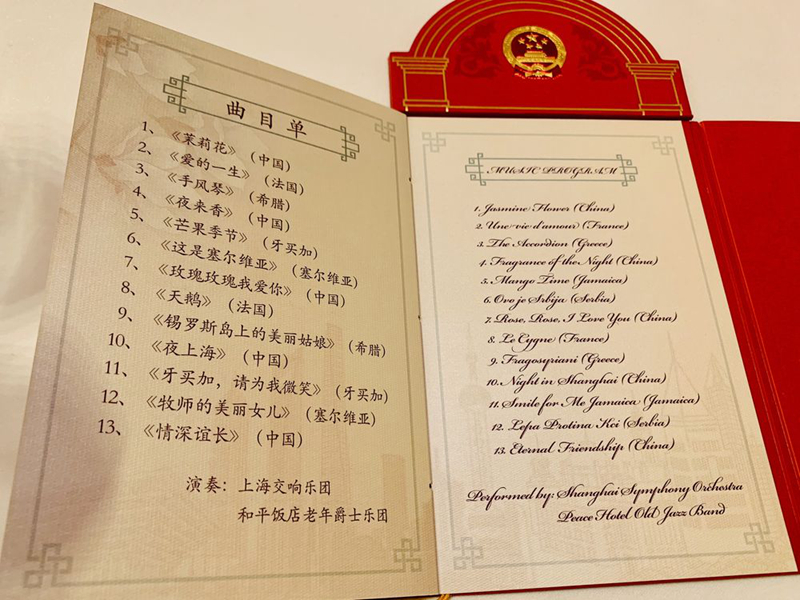 曲目单
1、《茉莉花》（中国）
2、《爱的一生》（法国）
3、《手风琴》（希腊）
4、《夜来香》（中国）
5、《芒果季节》（牙买加）
6、《这是塞尔维亚》（塞尔维亚）
7、《玫瑰玫瑰我爱你》（中国）
8、《天鹅》（法国）
9、《锡罗斯岛上的美丽姑娘》（希腊）
10、《夜上海》（中国）
11、《牙买加，请为我微笑》（牙买加）
12、《牧师的美丽女儿》（塞尔维亚）
13、《情深谊长》（中国）
演奏：上海交响乐团
和平饭店老年爵士乐团
MUSIC PROGRAM
1. Jasmine Flower (China)
2. Une vie d'amour (France)
3. The Accordion (Greece)
4. Fragrance of the Night (China)
5. Mango Time (Jamaica)
6. Ovo je Srbija (Serbia)
7. Rose, Rose, I Love You (China)
8. Le Cygne (France)
9. Fragosyriani (Greece)
10. Night in Shanghai (China)
11. Smile for Me Jamaica (Jamaica)
12. Lepa Protina Kci (Serbia)
13. Eternal Friendship (China)
Performed by: Shanghai Symphony Orchestra
Peace Hotel Old Jazz Band